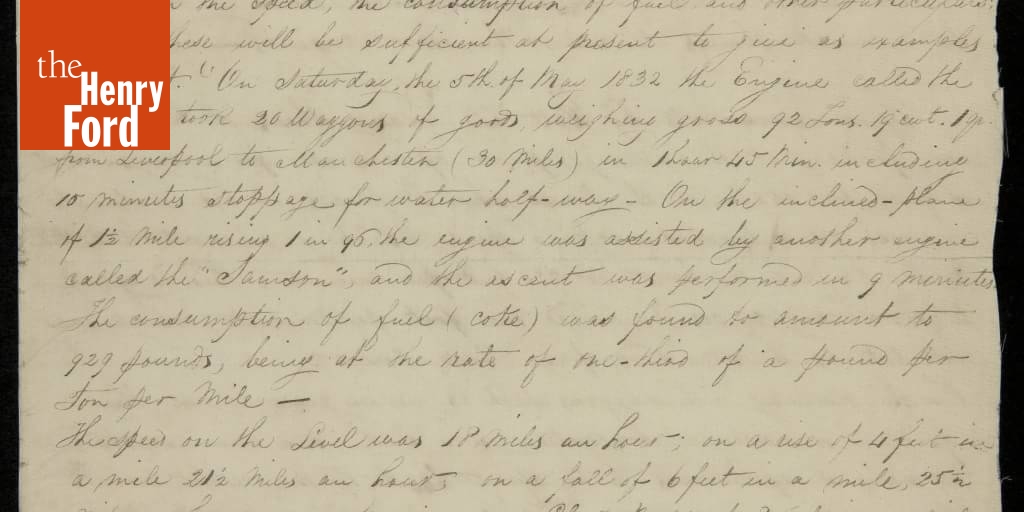 the
Henry
Ford
the speed, the consumption of fuel and other particulars;
these will be sufficient at present to give as examples
" On Saturday, the 5th of May 1832 the Engine called the
took 20 Waggons of goods, weighing gross 92 Tons. 19 cwt. 1 qr.
from Liverpool to Manchester (30 Miles) in 1 hour 45 Min. including
10 minutes stoppage for water half-way - On the inclined-plane
of 1½ Mile rising 1 in 96, the engine was assisted by another engine
called the "Samson", and the ascent was performed in 9 minutes
The consumption of fuel (coke) was found to amount to
929 pounds, being at the rate of one-third of a pound per
Ton per Mile —
The speed on the Level was 18 miles an hour; on a rise of 4 feet in
a mile 21½ Miles an hour; on a fall of 6 feet in a mile, 25½